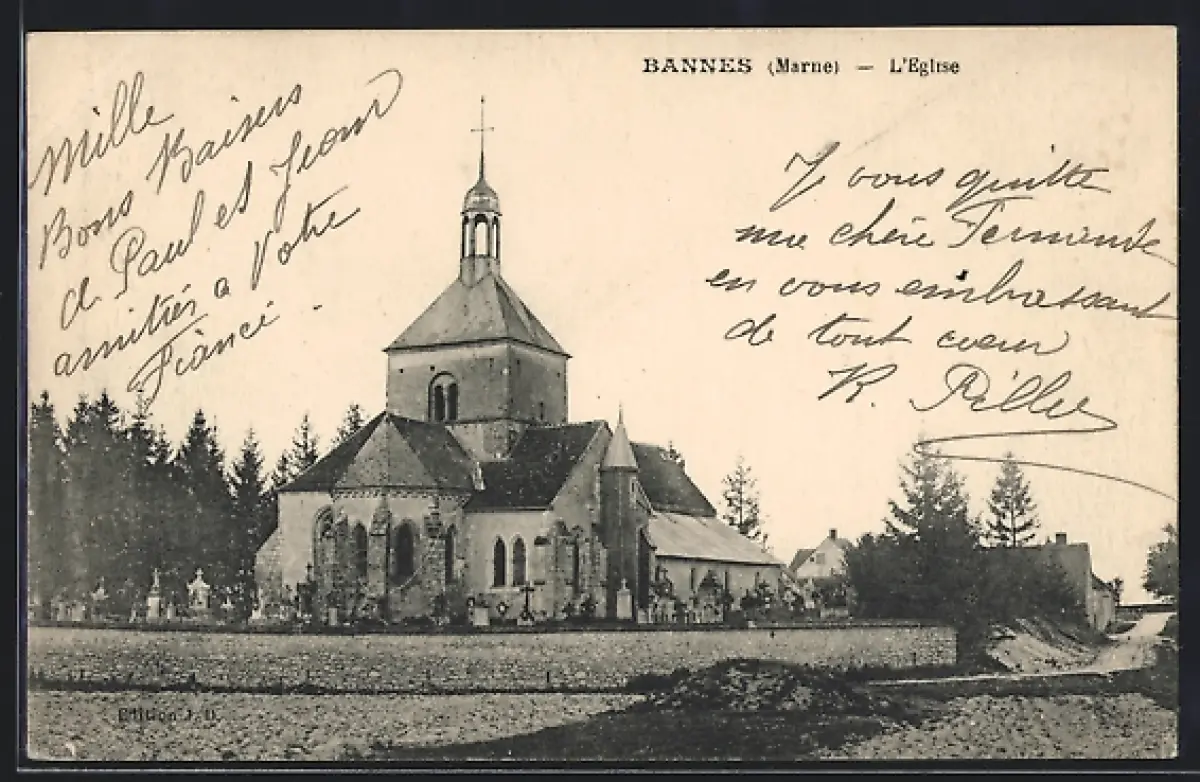 BANNES (Marne) — L'Eglise
Mille
Bons Baisers
de Paul et Jean
amitiés a Votre
Fiancé.
Je vous quitte
ma chère Fernande
en vous embrassant
de tout cœur
R.
Edition J. D.